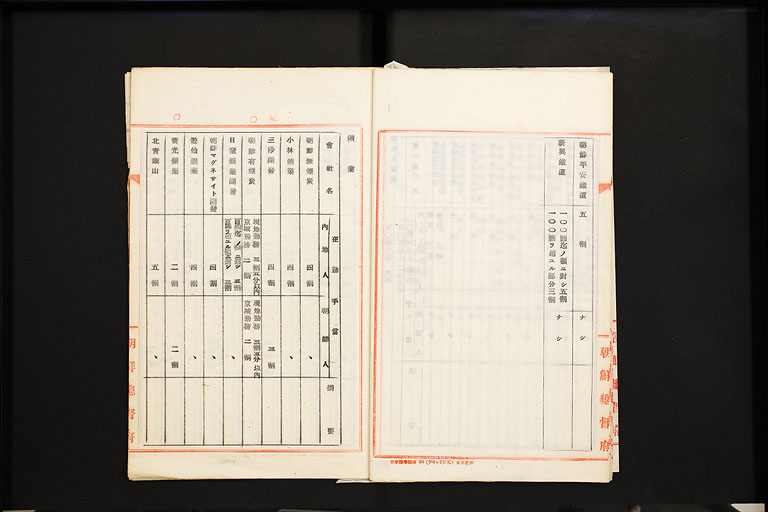 朝鮮平安鐵道 五割 ナシ
新興鐵道 一〇〇圓迄ノ額ニ對シ五割 ナシ
一〇〇圓ヲ超ユル部分三割
朝鮮總督府
鑛業
會社名 在勤手當 內地人 朝鮮人 摘要
朝鮮無煙炭 四割 、
小林鑛業 四割 、
三陟開發 四割 三割
朝鮮有煙炭 現地勤務 三割五分以內 現地勤務 三割五分以內
京城勤務 二割 京城勤務 二割
日窒鑛業開發 百圓迄ノ額ニ對シ 五割 、
百圓ヲ超ユル額ニ對シ 三割
朝鮮マグネサイト開發 四割 、
鑛業 四割 、
鑛業 二割 二割
北青鑛山 五割 、
朝鮮總督府